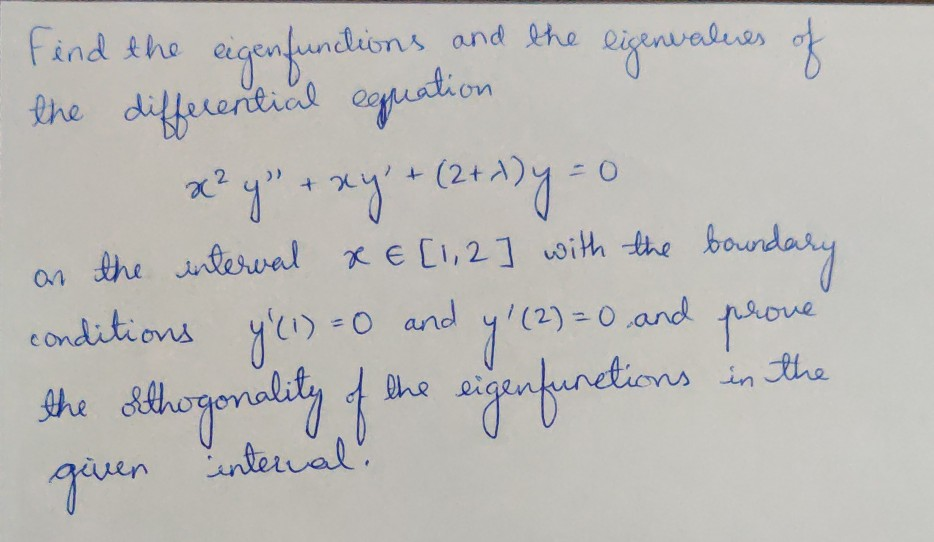 Find the eigenfunctions and the eigenvalues of
the differential equation
x² y'' + xy' + (2+λ)y = 0
on the interval x ∈ [1,2] with the boundary
conditions y'(1) = 0 and y'(2) = 0 and prove
the orthogonality of the eigenfunctions in the
given interval.